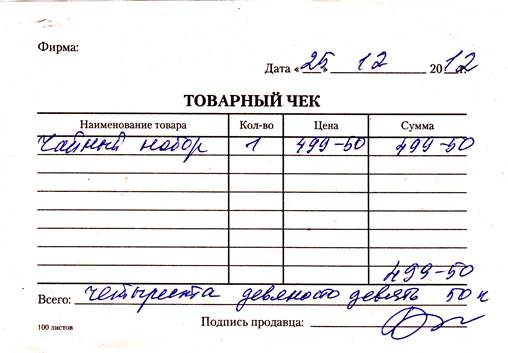 Фирма:
Дата «25» 12 2012
ТОВАРНЫЙ ЧЕК
Наименование товара Кол-во Цена Сумма
Чайный набор 1 499-50 499-50
499-50
Всего: четыреста девяносто девять 50 к
100 листов Подпись продавца: